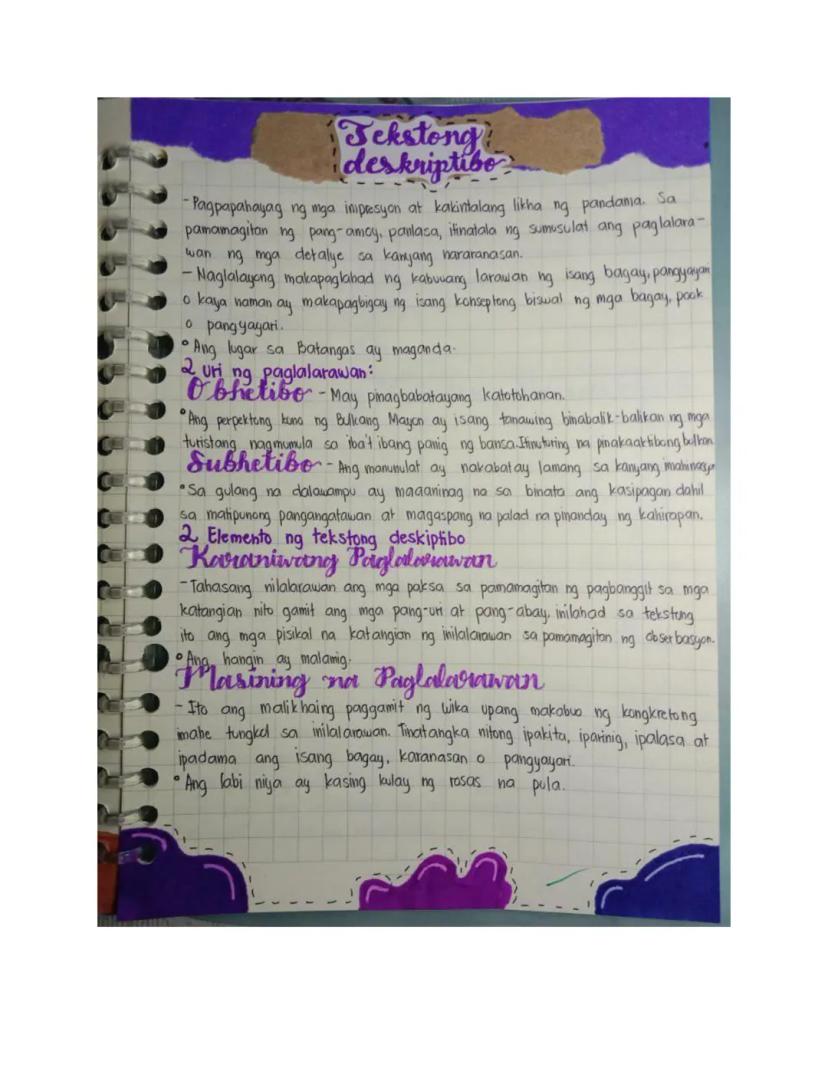 Tekstong
deskriptibo
- Pagpapahayag ng mga impresyon at kakintalang likha ng pandama. Sa
pamamagitan ng pang-amoy, panlasa, itinatala ng sumusulat ang paglalara-
wan ng mga detalye sa kanyang nararanasan.
- Naglalayong makapaglahad ng kabuuang larawan ng isang bagay, pangyayari
o kaya naman ay makapagbigay ng isang konseptong biswal ng mga bagay, pook
o pangyayari.
° Ang lugar sa Batangas ay maganda.
2 uri ng paglalarawan:
Obhetibo - May pinagbabatayang katotohanan.
° Ang perpektong kuno ng Bulkang Mayon ay isang tanawing binabalik-balikan ng mga
turistang nagmumula sa iba't ibang panig ng bansa. Itinuturing na pinakaaktibong bulkan
Subhetibo - Ang manunulat ay nakabatay lamang sa kanyang imahinasyon
° Sa gulang na dalawampu ay maaaninag na sa binata ang kasipagan dahil
sa matipunong pangangatawan at magaspang na palad na pinanday ng kahirapan.
2 Elemento ng tekstong deskiptibo
Karaniwang Paglalarawan
- Tahasang nilalarawan ang mga paksa sa pamamagitan ng pagbanggit sa mga
katangian nito gamit ang mga pang-uri at pang-abay, inilahad sa tekstong
ito ang mga pisikal na katangian ng inilalarawan sa pamamagitan ng obserbasyon.
° Ang hangin ay malamig.
Masining na Paglalarawan
- Ito ang malikhaing paggamit ng wika upang makabuo ng kongkretong
imahe tungkol sa inilalarawan. Tinatangka nitong ipakita, iparinig, ipalasa at
ipadama ang isang bagay, karanasan o pangyayari.
° Ang labi niya ay kasing kulay ng rosas na pula.